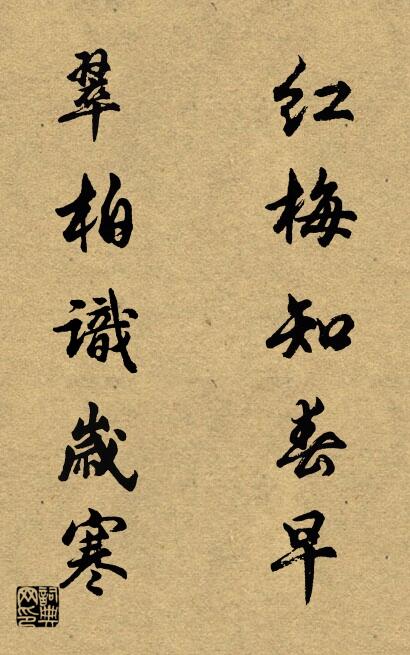 红梅知春早
翠柏識歲寒
詞典网印